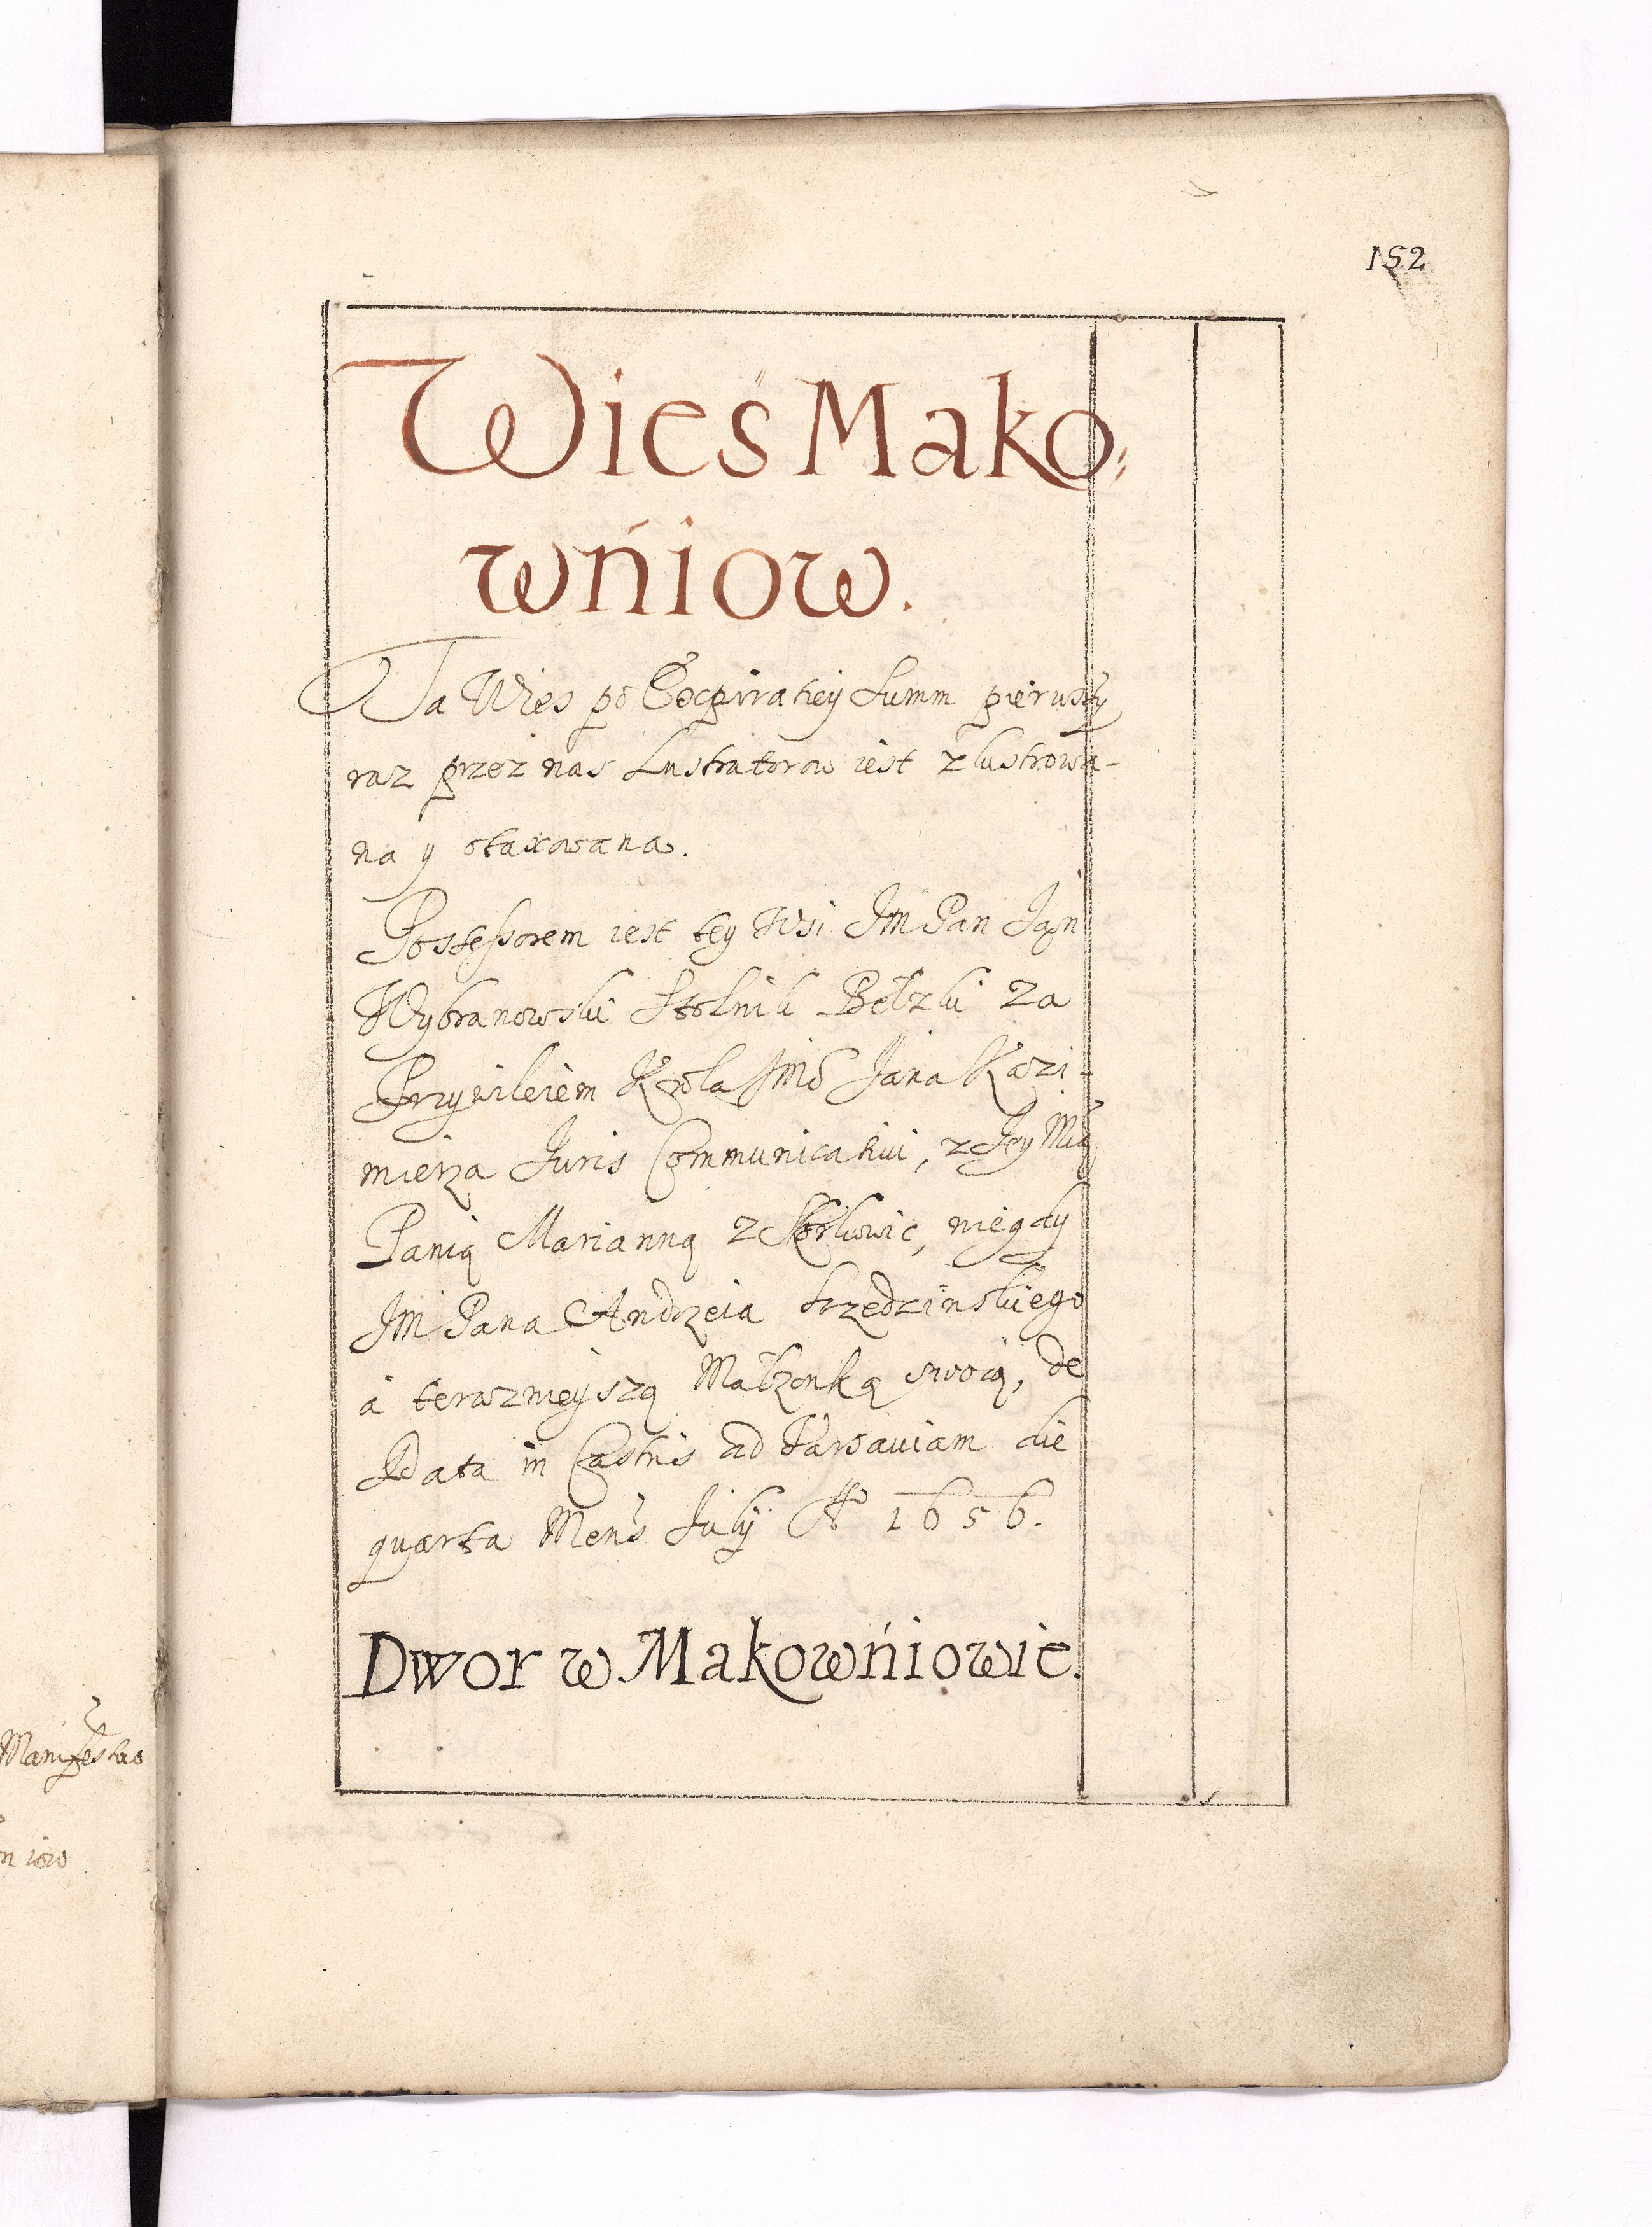 152
Wieś Mako=
wńiow.
Ta Wies po Expiratiey Summ pierwszy
raz przez nas Lustratorow iest zlustrowa-
na y otaxowana.
Possessorem iest tey Wsi Jm Pan Jan
Wybranowski Stolnik Bełzki za
Przywileiem Krola Jmo Jana Kazi-
mierza Juris Communicatiui, z Jey Mcią
Panią Marianną z, niegdy
Jm Pana Andrzeia Srzedzinskiego
á teraznieyszą Małzonką swoią, de
Data in Castris ad Varsauiam die
quarta Mens July Ao 1656.
Dwor w Makowńiowie.
Manifestao
niow.